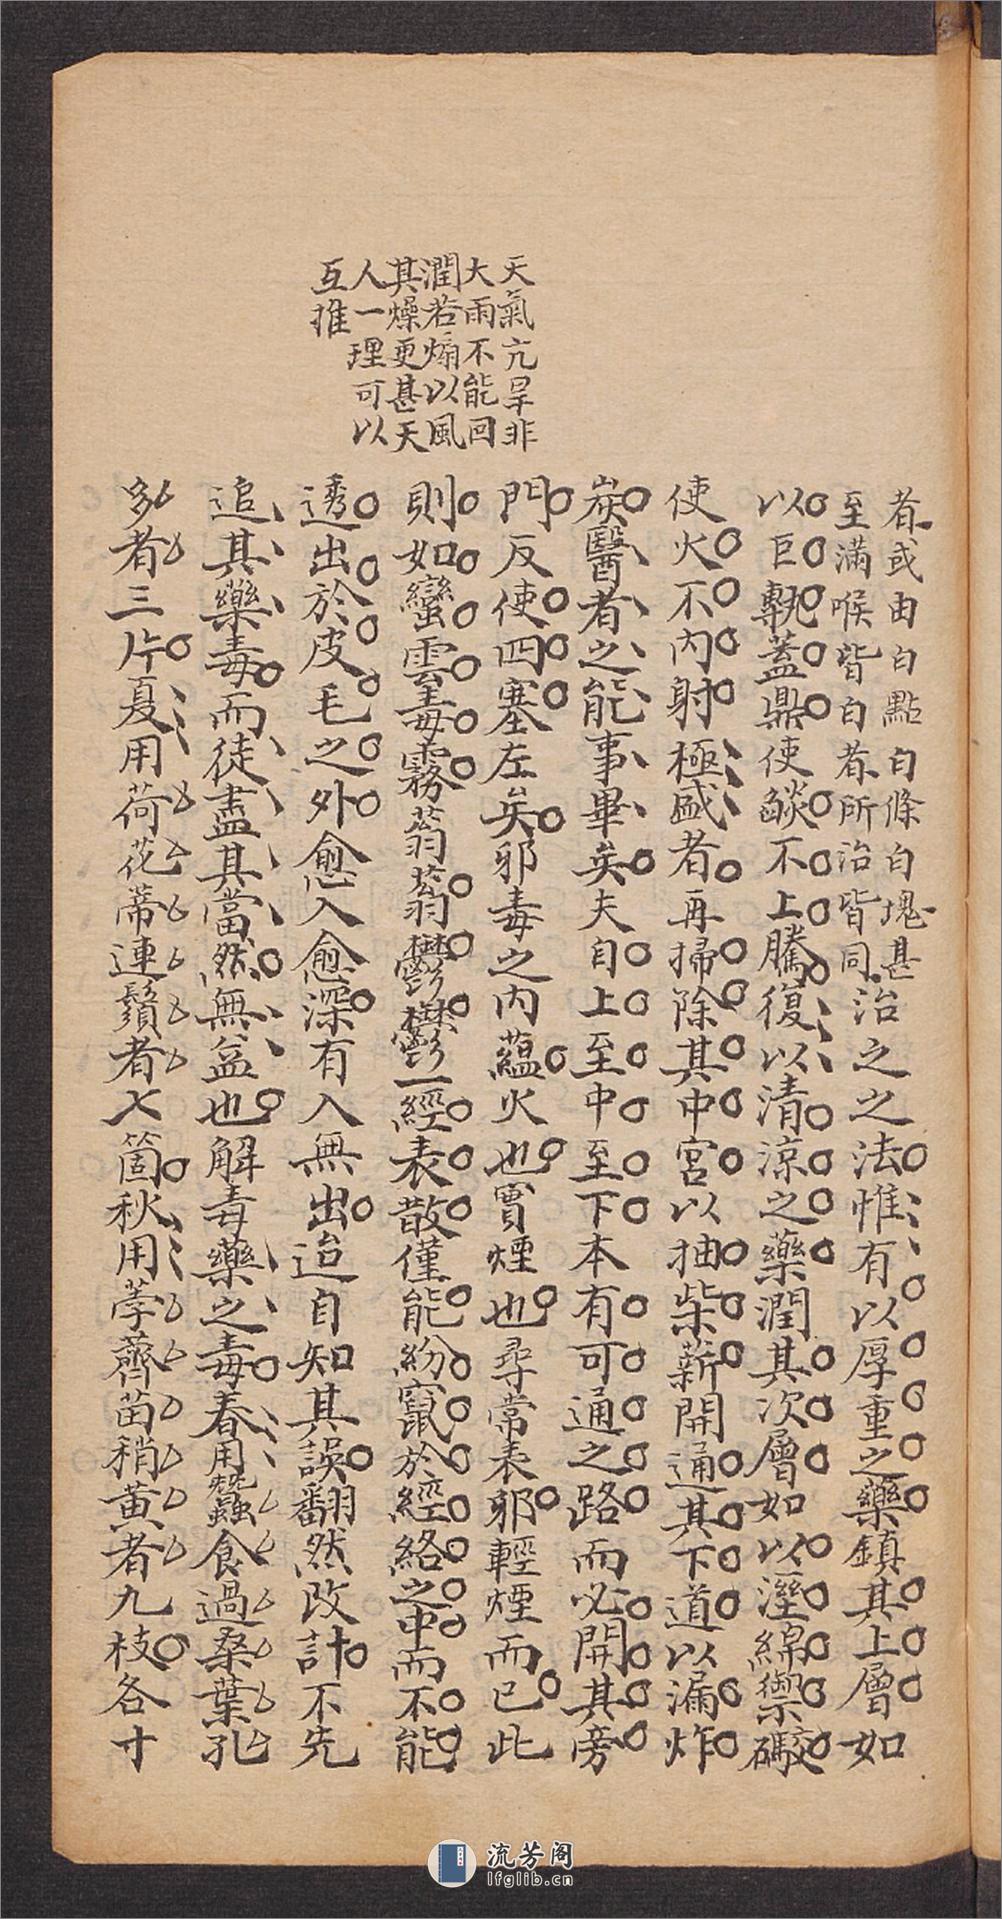 天氣亢旱非
大雨不能回
潤若煽以風
其燥更甚天
人一理可以
互推
者或由白點白條白塊甚
至滿喉皆白者所治皆同
治之之法惟有以厚重之藥鎮其上層如
以巨䡄蓋鼎使燄不上騰復以清涼之藥潤其次層如以溼綿禦礮
使火不內射極盛者再掃除其中宮以抽柴薪開通其下道以漏炸
炭醫者之能事畢矣夫自上至中至下本有可通之路而必開其旁
門反使四塞左矣邪毒之內蘊火也實煙也尋常表邪輕煙而已此
則如蠻雲毒霧蓊蓊鬱鬱一經表散僅能紛竄於經絡之中而不能
透出於皮毛之外愈入愈深有入無出迨自知其誤翻然改計不先
追其藥毒而徒盡其當然無益也解毒藥之毒春用蠶食過桑葉孔
多者三片夏用荷花蒂連鬚者七箇秋用荸薺苗稍黃者九枝各寸
流芳阁
lfglib.cn